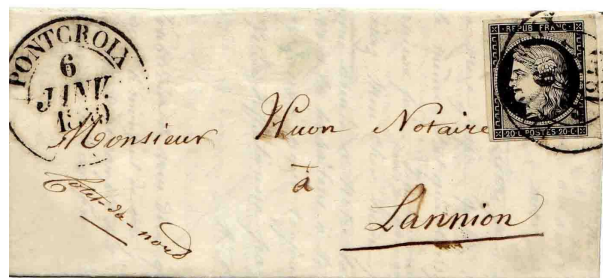 PONTCROIX
6
JANV.
REPUB FRANC
20 C POSTES 20 C
Monsieur Huon Notaire
à
Lannion
Cotes-du-nord